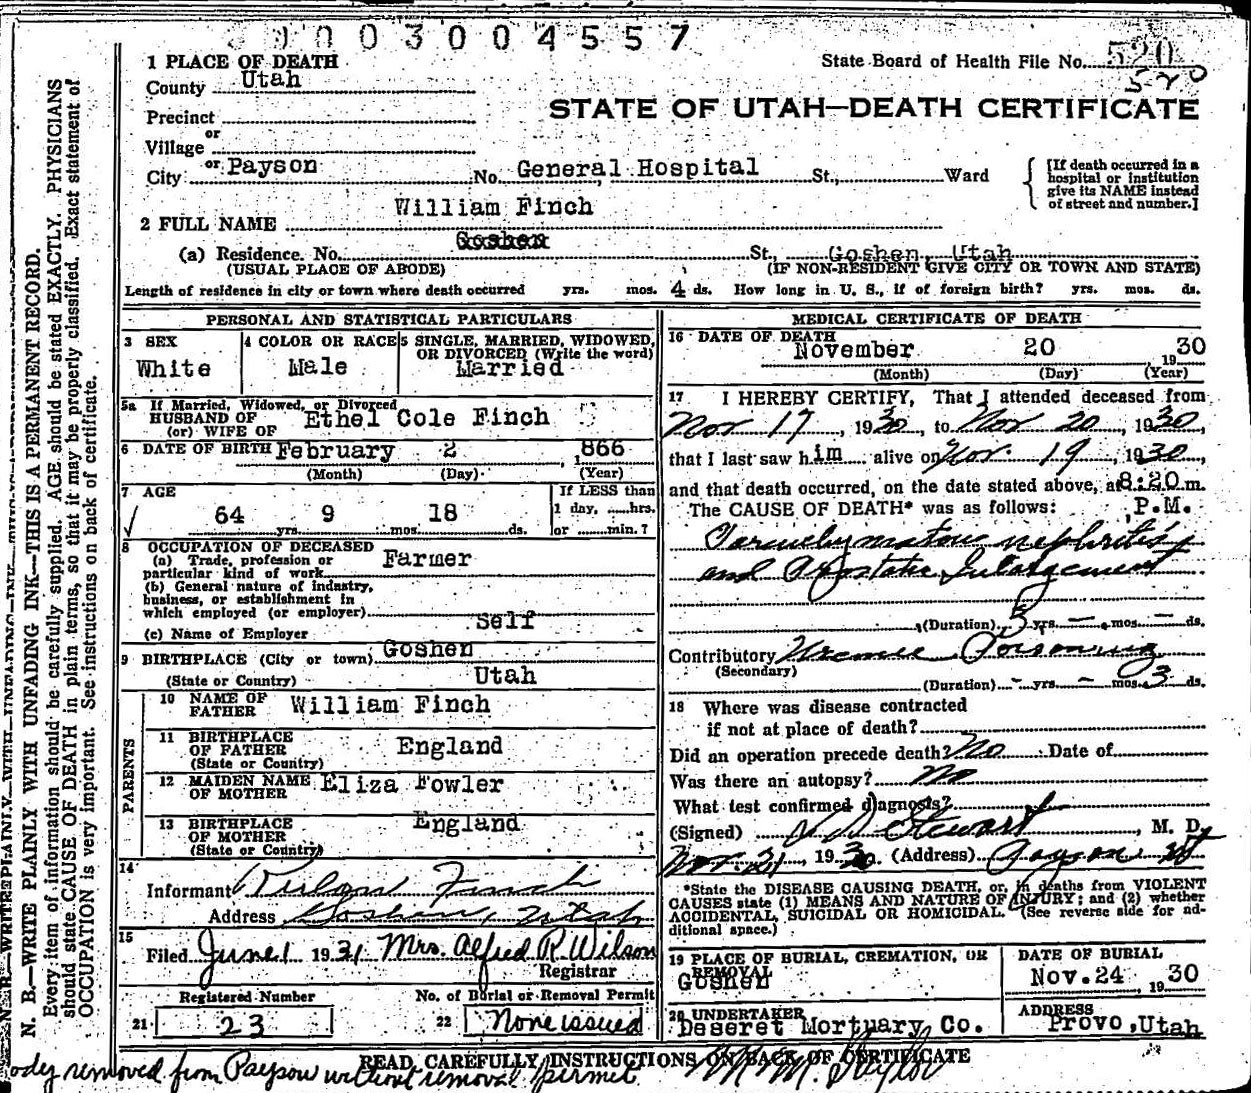 0003004557
1 PLACE OF DEATH
State Board of Health File No. 520
520
County Utah
STATE OF UTAH—DEATH CERTIFICATE
Precinct
or
Village
or
City Payson No. General Hospital St., Ward
[If death occurred in a
hospital or institution
give its NAME instead
of street and number.]
2 FULL NAME William Finch
(a) Residence. No. Goshen St., Goshen, Utah
(USUAL PLACE OF ABODE) (IF NON-RESIDENT GIVE CITY OR TOWN AND STATE)
Length of residence in city or town where death occurred yrs. mos. 4 ds. How long in U. S., if of foreign birth? yrs. mos. ds.
PERSONAL AND STATISTICAL PARTICULARS
3 SEX White
4 COLOR OR RACE Male
5 SINGLE, MARRIED, WIDOWED,
OR DIVORCED (Write the word)
Married
5a If Married, Widowed, or Divorced
HUSBAND OF
(or) WIFE OF Ethel Cole Finch
6 DATE OF BIRTH February 2, 1866
(Month) (Day) (Year)
7 AGE
64 yrs. 9 mos. 18 ds.
If LESS than
1 day, ......hrs.
or ......min.?
8 OCCUPATION OF DECEASED
(a) Trade, profession or
particular kind of work Farmer
(b) General nature of industry,
business, or establishment in
which employed (or employer) Self
(c) Name of Employer
9 BIRTHPLACE (City or town) Goshen
(State or Country) Utah
PARENTS
10 NAME OF
FATHER William Finch
11 BIRTHPLACE
OF FATHER England
(State or Country)
12 MAIDEN NAME
OF MOTHER Eliza Fowler
13 BIRTHPLACE
OF MOTHER England
(State or Country)
14
Informant Finch
Address Goshen, Utah
15
Filed June 1 1931 Mrs. Alfred R. Wilson
Registrar
Registered Number
21 23
No. of Burial or Removal Permit
22 None issued
MEDICAL CERTIFICATE OF DEATH
16 DATE OF DEATH
November 20 1930
(Month) (Day) (Year)
17 I HEREBY CERTIFY, That I attended deceased from
Nov 17, 1930, to Nov 20, 1930,
that I last saw him alive on Nov. 19, 1930,
and that death occurred, on the date stated above, at 8:20 m.
The CAUSE OF DEATH* was as follows: P.M.
nephritis
and Prostatic Enlargement
(Duration) 5 yrs. — mos. — ds.
Contributory Uremic Poisoning
(Secondary)
(Duration) - yrs. - mos. 3 ds.
18 Where was disease contracted
if not at place of death?
Did an operation precede death? No Date of
Was there an autopsy? No
What test confirmed diagnosis?
(Signed) Stewart, M. D.
Nov. 21, 1930 (Address) Payson Ut
*State the DISEASE CAUSING DEATH, or, in deaths from VIOLENT
CAUSES state (1) MEANS AND NATURE OF INJURY; and (2) whether
ACCIDENTAL, SUICIDAL OR HOMICIDAL. (See reverse side for ad-
ditional space.)
19 PLACE OF BURIAL, CREMATION, OR
REMOVAL
Goshen
DATE OF BURIAL
Nov. 24 1930
20 UNDERTAKER
Deseret Mortuary Co.
ADDRESS
Provo, Utah
READ CAREFULLY INSTRUCTIONS ON BACK OF CERTIFICATE
ody removed from Payson without removal permit
N. B.—WRITE PLAINLY WITH UNFADING INK—THIS IS A PERMANENT RECORD.
Every item of information should be carefully supplied. AGE should be stated EXACTLY. PHYSICIANS
should state CAUSE OF DEATH in plain terms, so that it may be properly classified. Exact statement of
OCCUPATION is very important. See instructions on back of certificate.